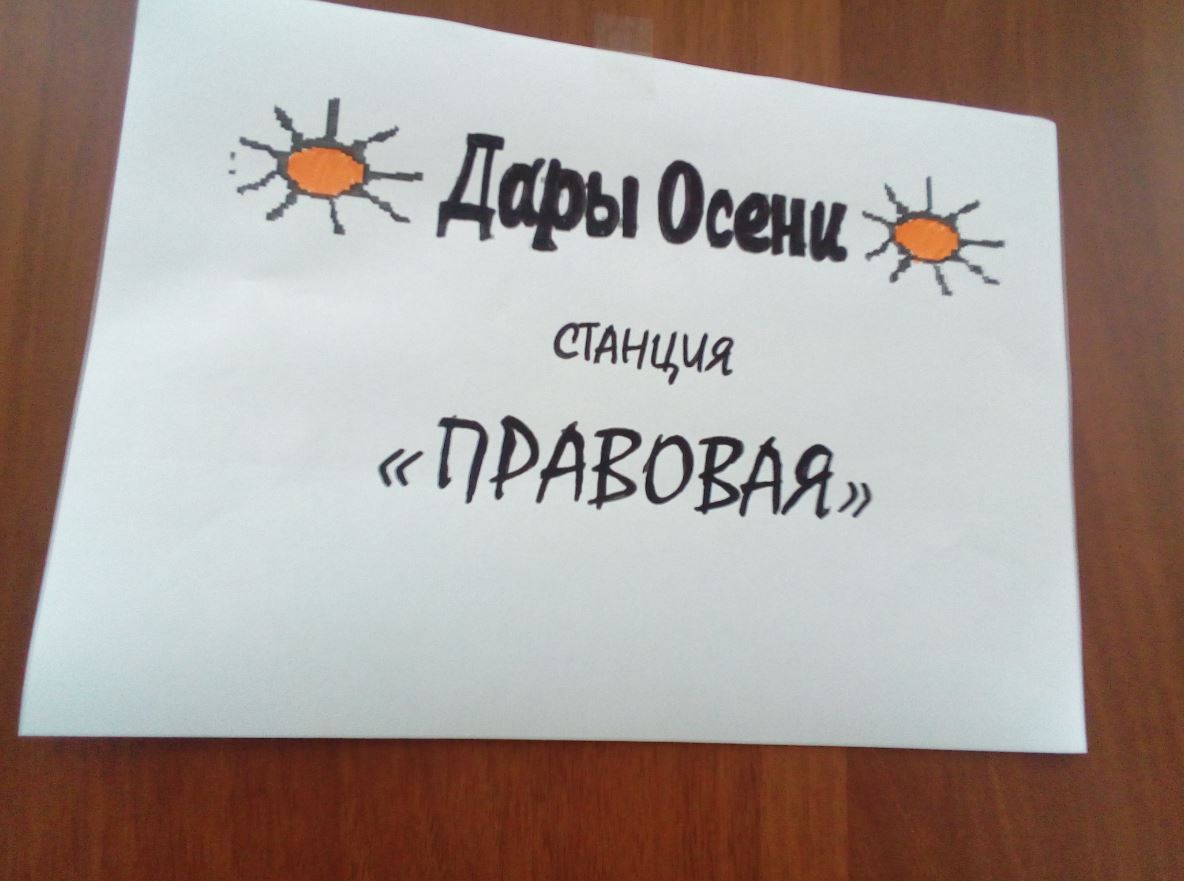 Дары Осени
СТАНЦИЯ
«ПРАВОВАЯ»